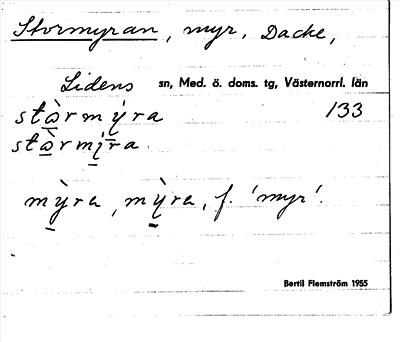 Stormyran, myr, Dacke,
Lidens sn, Med. ö. doms. tg, Västernorrl. län
stɔ̀rmỳra 133
stɔ̀rmi̯r̄a
mỳra, mỳra, f. 'myr'.
Bertil Flemström 1955